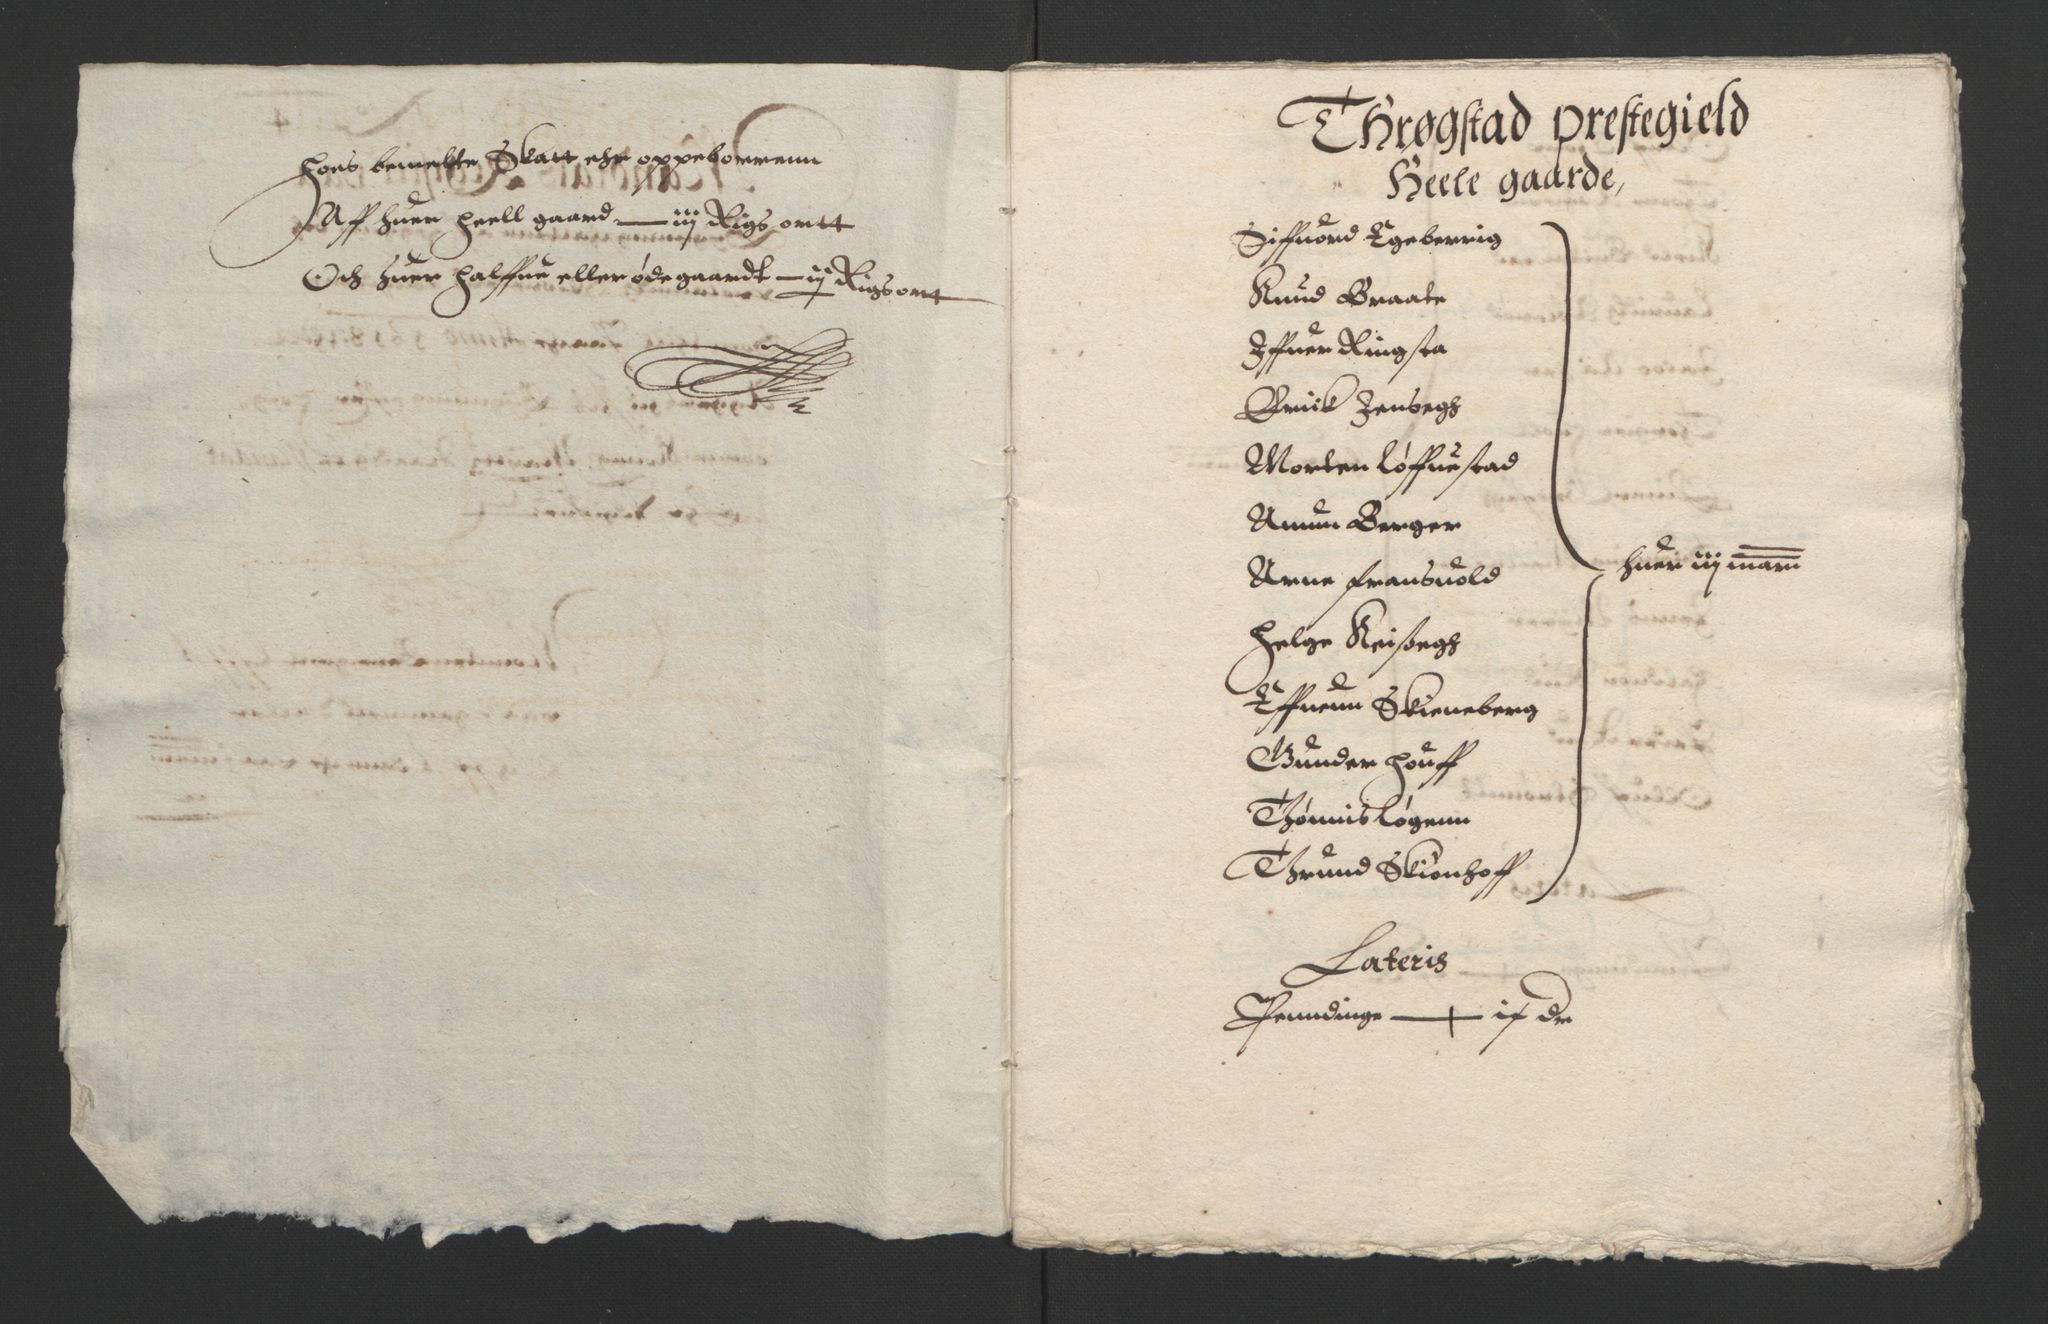 hves bemelte Skatt ehr oppeborrenn
Aff huer heell gaard — iij Rigs ortt
Och huer halffue eller øde gaardt — ij Rigs ort
Thrøgstad prestegield
Heele gaarde,
Siffuord Egeberrig
Knud Braate
Iffuer Ringsta
Erick Jensegh
Morten Løffuestad
Amun Berger
Arne fransuold
Helge Keisegh
Effuenn Skieneberg
Gunder Houff
Thönnis Løgenn
Thrund Skionhoff
huer iij mark
Lateris
Penndinge — ix dr